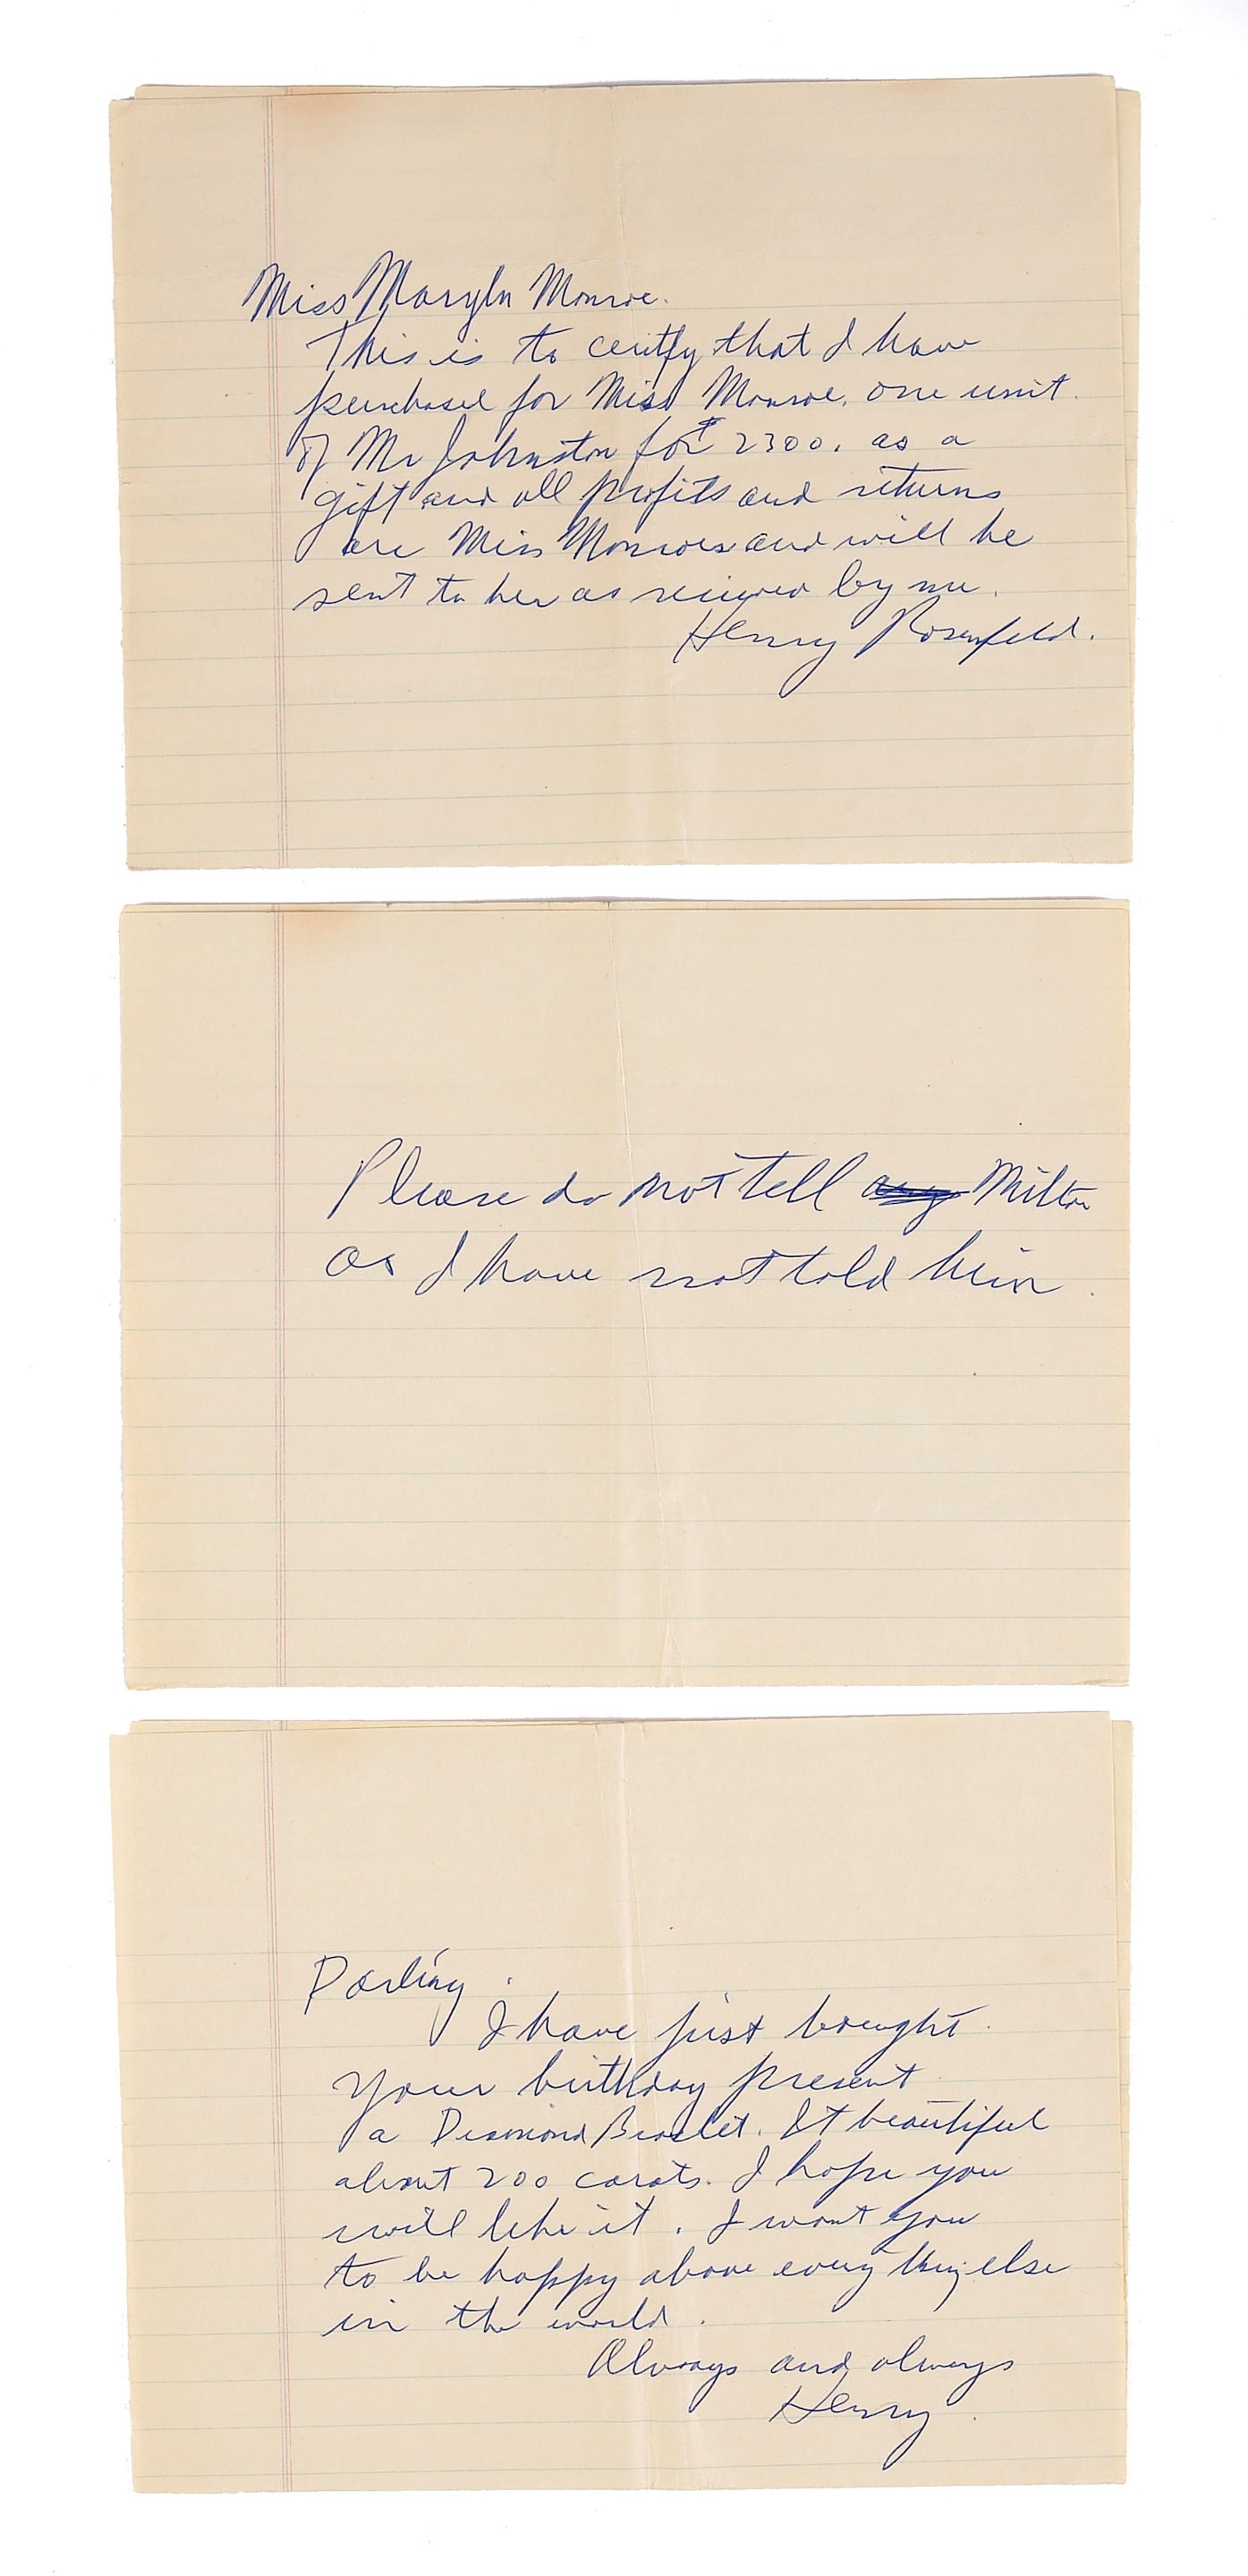 Miss Maryln Monroe.
This is to certify that I have
purchased for Miss Monroe, one unit
of Mr Johnston for $2300. as a
gift and all profits and returns
are Miss Monroes and will be
sent to her as recieved by me.
Henry Rosenfeld.
Please do not tell any Milton
as I have not told him.
Darling.
I have just brought
your birthday present
a Diamond Braclet. It beautiful
about 200 carats. I hope you
will like it. I want you
to be happy above every thing else
in the world.
Always and always
Henry.